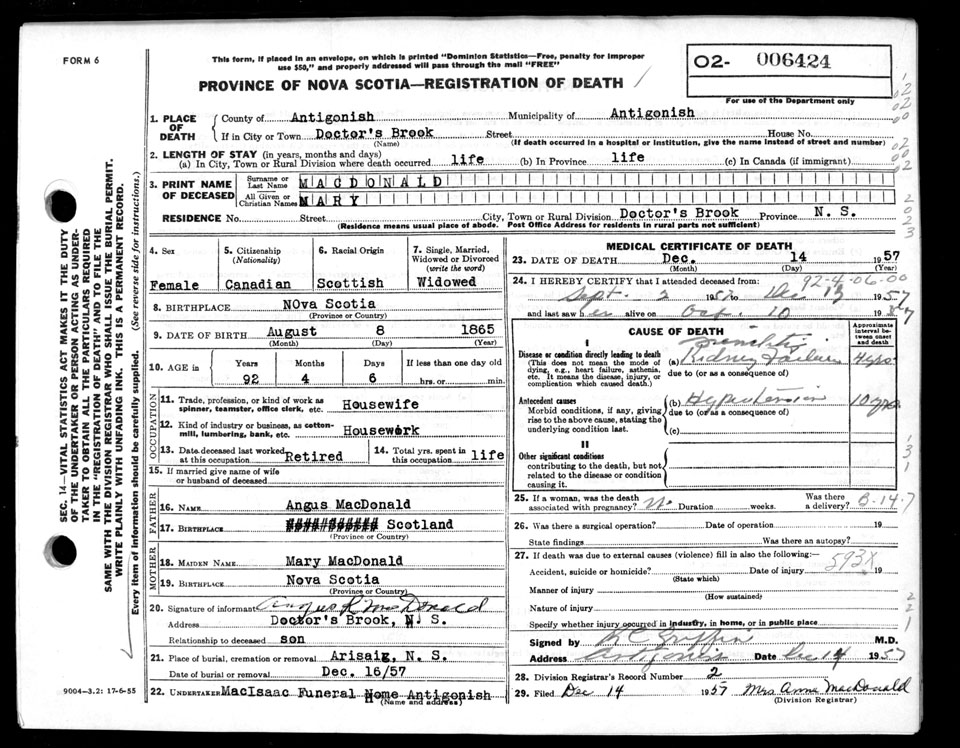 FORM 6
This form, if placed in an envelope, on which is printed "Dominion Statistics—Free, penalty for improper
use $50," and properly addressed will pass through the mail "FREE"
PROVINCE OF NOVA SCOTIA—REGISTRATION OF DEATH
O2- 006424
For use of the Department only
1. PLACE OF DEATH
County of Antigonish Municipality of Antigonish
If in City or Town Doctor's Brook Street House No.
(Name) (If death occurred in a hospital or institution, give the name instead of street and number)
2. LENGTH OF STAY (in years, months and days)
(a) In City, Town or Rural Division where death occurred life (b) In Province life (c) In Canada (if immigrant)
3. PRINT NAME OF DECEASED
Surname or Last Name MACDONALD
All Given or Christian Names MARY
RESIDENCE No. Street City, Town or Rural Division Doctor's Brook Province N. S.
(Residence means usual place of abode. Post Office Address for residents in rural parts not sufficient)
4. Sex
Female
5. Citizenship (Nationality)
Canadian
6. Racial Origin
Scottish
7. Single, Married, Widowed or Divorced (write the word)
Widowed
8. BIRTHPLACE NOva Scotia
(Province or Country)
9. DATE OF BIRTH August 8 1865
(Month) (Day) (Year)
10. AGE in
Years Months Days If less than one day old
92 4 6 hrs. or min.
OCCUPATION
11. Trade, profession, or kind of work as
spinner, teamster, office clerk, etc. Housewife
12. Kind of industry or business, as cotton-
mill, lumbering, bank, etc. Housework
13. Date deceased last worked
at this occupation Retired
14. Total yrs. spent in
this occupation life
15. If married give name of wife
or husband of deceased
FATHER
16. NAME Angus MacDonald
17. BIRTHPLACE Scotland
(Province or Country)
MOTHER
18. MAIDEN NAME Mary MacDonald
19. BIRTHPLACE Nova Scotia
(Province or Country)
20. Signature of informant Angus R McDonald
Address Doctor's Brook, N. S.
Relationship to deceased son
21. Place of burial, cremation or removal Arisaig, N. S.
Date of burial or removal Dec. 16/57
22. UNDERTAKER MacIsaac Funeral Home Antigonish
(Name and address)
MEDICAL CERTIFICATE OF DEATH
23. DATE OF DEATH Dec. 14 1957
(Month) (Day) (Year)
92-4-06-00
24. I HEREBY CERTIFY that I attended deceased from:
Sept. 2 1957 to Dec 1957
and last saw her alive on Oct. 10 19
CAUSE OF DEATH
Approximate interval between onset and death
I
Disease or condition directly leading to death
(This does not mean the mode of
dying, e.g., heart failure, asthenia,
etc. It means the disease, injury, or
complication which caused death.)
(a) Kidney Failure
due to (or as a consequence of)
Antecedent causes
Morbid conditions, if any, giving
rise to the above cause, stating the
underlying condition last.
(b) Hypertension 10 yrs
due to (or as a consequence of)
(c)
II
Other significant conditions
contributing to the death, but not
related to the disease or condition
causing it.
25. If a woman, was the death
associated with pregnancy? No Duration weeks. Was there
a delivery? 8-14-7
26. Was there a surgical operation? Date of operation 19
State findings Was there an autopsy?
27. If death was due to external causes (violence) fill in also the following:
593X
Accident, suicide or homicide? Date of injury 19
(State which)
Manner of injury
(How sustained)
Nature of injury
Specify whether injury occurred in industry, in home, or in public place
Signed by Griffin M.D.
Address Antigonish Date Dec 14 1957
28. Division Registrar's Record Number 2
29. Filed Dec 14 1957 Mrs Anna MacDonald
(Division Registrar)
SEC. 14—VITAL STATISTICS ACT MAKES IT THE DUTY
OF THE UNDERTAKER OR PERSON ACTING AS UNDER-
TAKER TO OBTAIN ALL THE PARTICULARS REQUIRED
IN THE "REGISTRATION OF DEATH" AND TO FILE THE
SAME WITH THE DIVISION REGISTRAR WHO SHALL ISSUE THE BURIAL PERMIT.
WRITE PLAINLY WITH UNFADING INK. THIS IS A PERMANENT RECORD.
Every item of information should be carefully supplied. (See reverse side for instructions.)
9004—3.2: 17-6-55